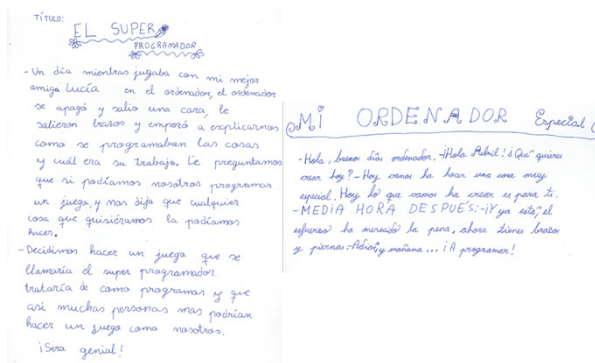 TÍTULO:
EL SUPER
PROGRAMADOR
-Un día mientras jugaba con mi mejor
amiga Lucía en el ordenador, el ordenador
se apagó y salio una cara, le
salieron brazos y empezó a explicarnos
como se programaban las cosas
y cuál era su trabajo. Le preguntamos
que si podíamos nosotros programar
un juego, y nos dijo que cualquier
cosa que quisiéramos la podíamos
hacer.
-Decidimos hacer un juego que se
llamaría el super programador
trataría de como programas y que
asi muchas personas mas podrían
hacer un juego como nosotros.
¡Sera genial!
MI ORDENADOR Especial
-Hola, buenos días ordenador. -¡Hola Abril! ¿Qué quieres
crear hoy? -Hoy vamos ha hacer una cosa muy
especial. Hoy lo que vamos ha crear es para ti.
-MEDIA HORA DESPUÉS:-¡Y ya está, el
esfuerzo ha merecido la pena, ahora tienes brazos
y piernas. -Adiós, y mañana... ¡A programar!